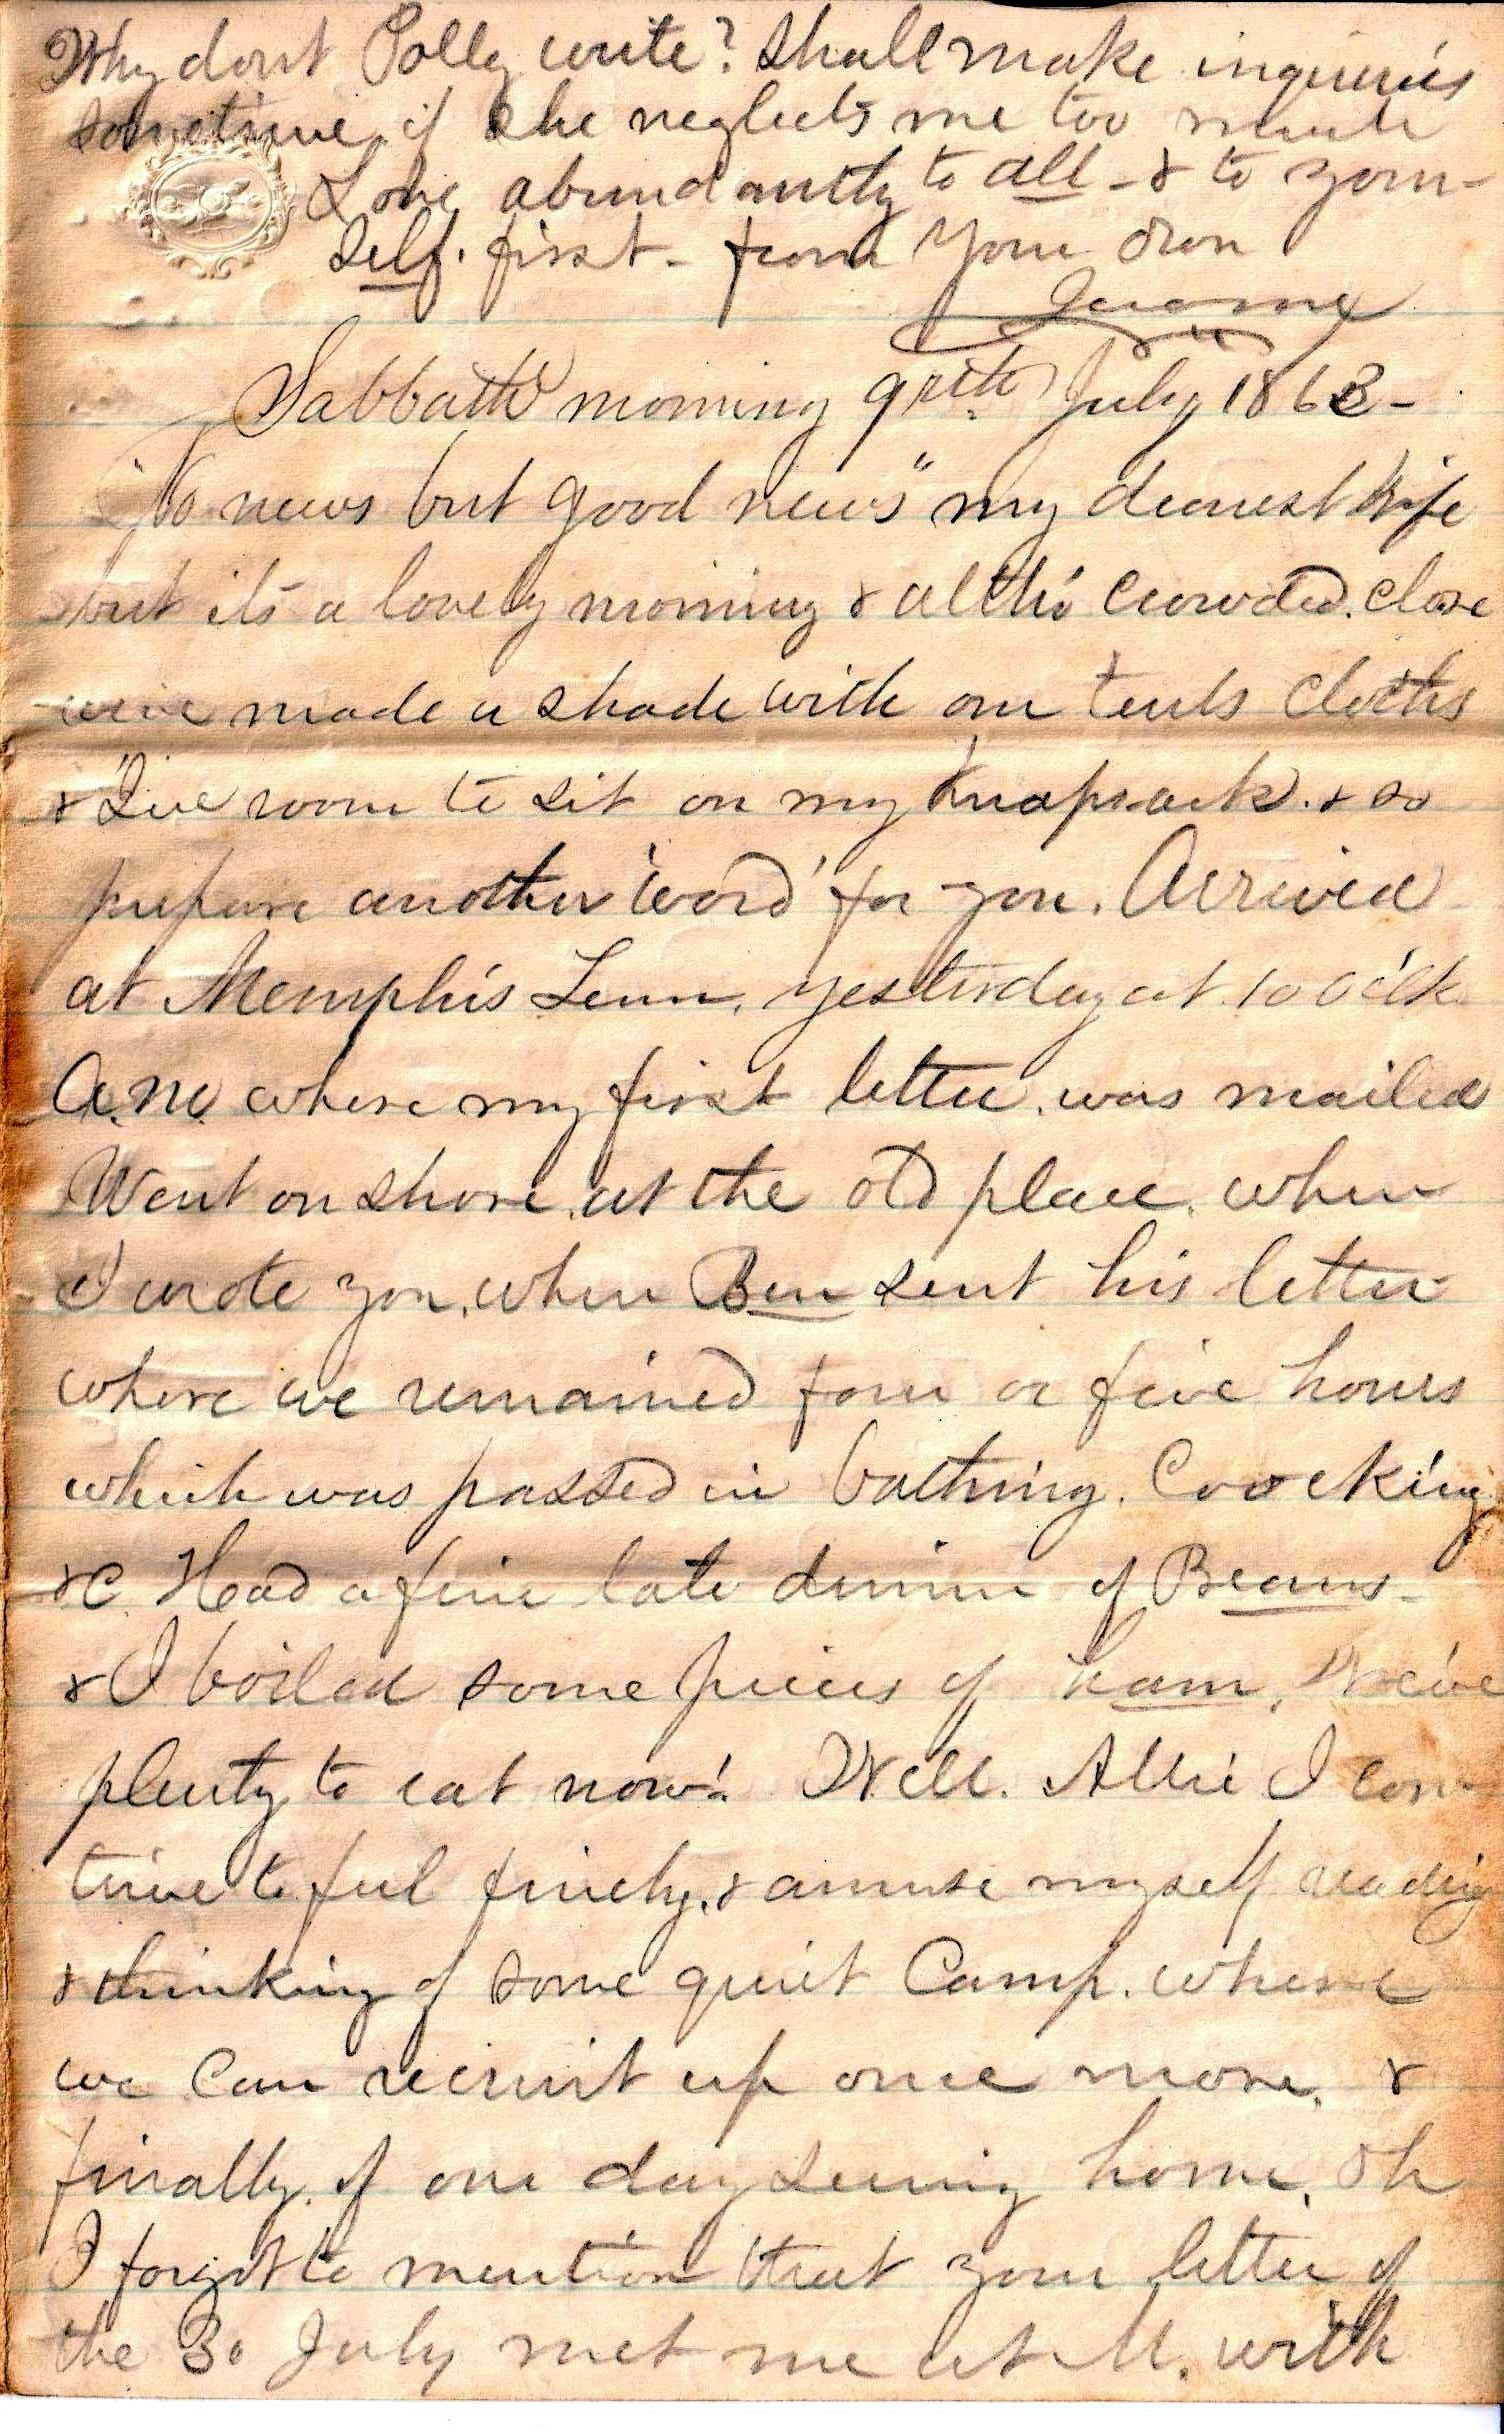 Why dont Polly write? Shall make inquiries
sometime, if she neglects me too much
Love abundantly to all - & to your-
self. first - from your own
Jerome
Sabbath morning 9th July 1863 -
"No news but good news" my dearest Wife
but its a lovely morning & altho' crowded. close
weve made a shade with our tents cloths
& I've room to sit on my Knapsack. & so
prepare another 'word' for you. Arrived
at Memphis Tenn. yesterday at 10 oclk
A.M. where my first letter. was mailed
Went on shore. at the old place. where
I wrote you. when Ben sent his letter
where we remained four or five hours
which was passed in bathing. Coocking
&c. Had a fine late dinner of Beans -
& I boiled some pieces of ham. We've
plenty to eat now! Well. Allie I con-
tinue to feel finely. & amuse myself reading
& thinking of some quiet Camp. where
we can recruit up once more. &
finally. of one day seeing home. Oh
I forgot to mention that your letter of
the 30 July met me at M. with